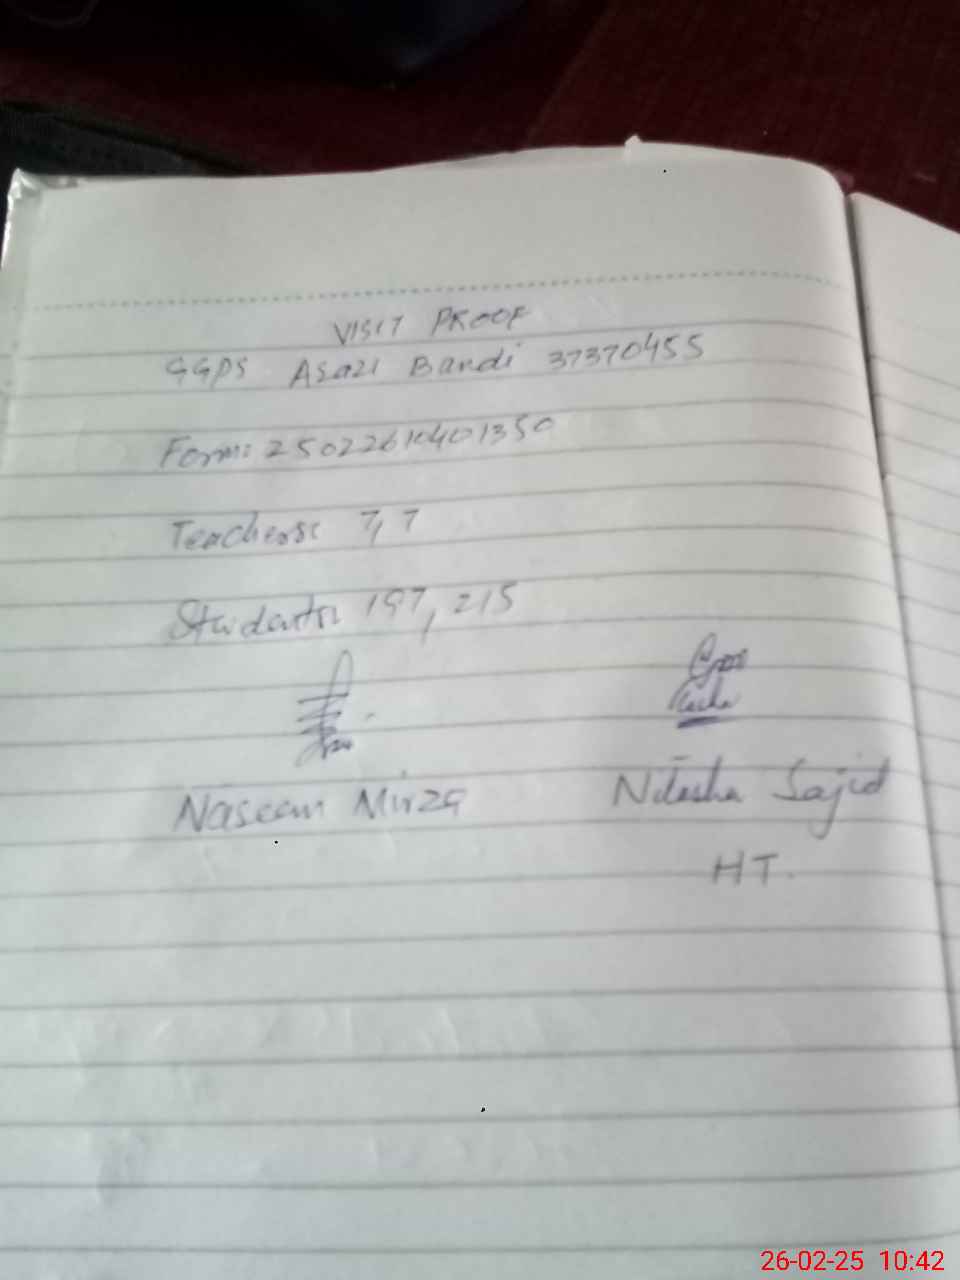 VISIT PROOF
GGPS Arazi Bandi 37370455
Form: 25022610401350
Teachers: 7, 7
Students: 197, 215
Naseem Mirza
Nitasha Sajid
HT.
26-02-25 10:42